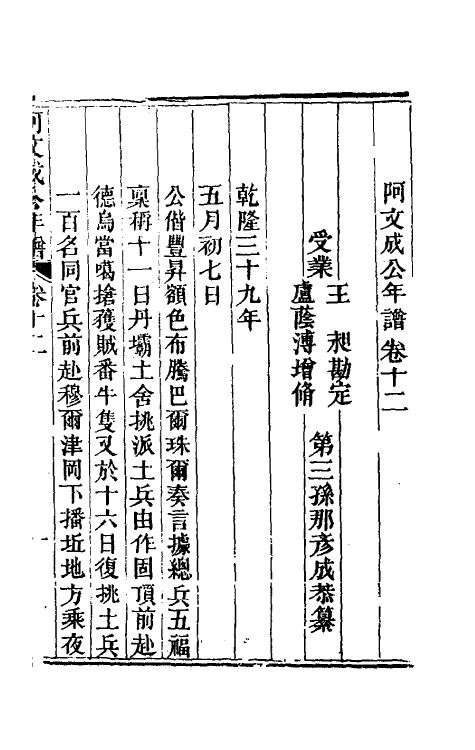 阿文成公年譜卷十二
第三孫那彥成恭纂
受業
王　昶勘定
盧蔭溥增脩
乾隆三十九年
五月初七日
公偕豐昇額色布騰巴爾珠爾奏言據總兵五福
稟稱十一日丹壩土舍挑派土兵由作固頂前赴
德烏當噶搶獲賊番牛隻又於十六日復挑土兵
一百名同官兵前赴穆爾津岡下播坵地方乘夜
阿文成公年譜　卷十二　一